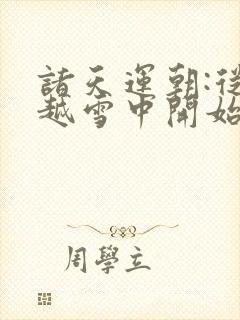 諸天運朝:從
越雪中開始
周學立